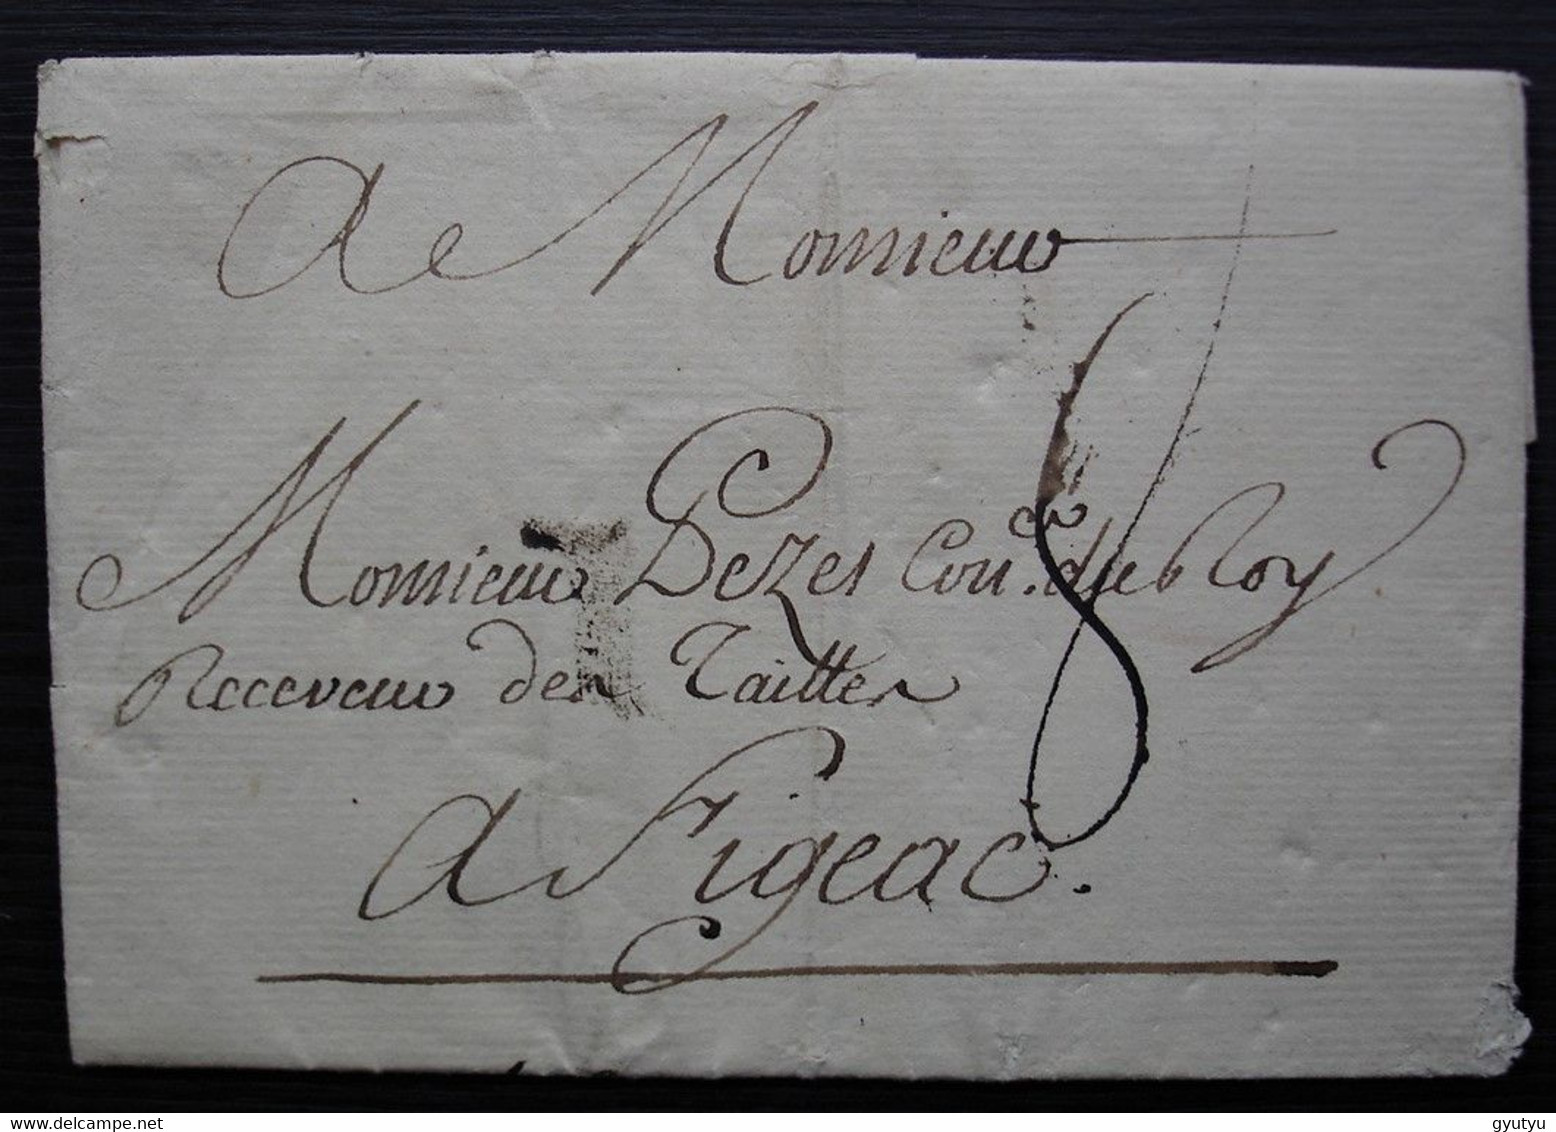 A Monsieur
Monsieur Dezes Con.er du Roy
Receveur des Tailles
A Figeac.
8
delcampe.net
gyutyu